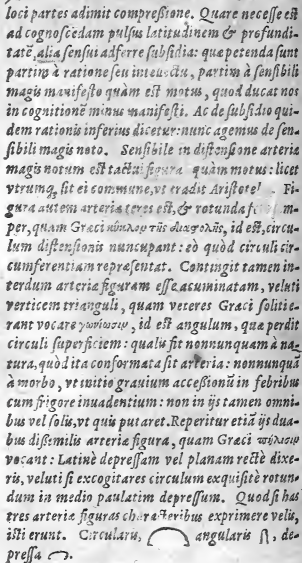 loci partes adimit compreßione. Quare necesse est
ad cognoscēdam pulsus latitudinem & profundi-
tatē, alia sensui adferre subsidia: quæ petenda sunt
partim à ratione seu intellectu, partim à sensibili
magis manifesto quàm est motus, quod ducat nos
in cognitionē minus manifesti. Ac de subsidio qui-
dem rationis inferius dicetur: nunc agemus de sen-
sibili magis noto. Sensibile in distensione arteriæ
magis notum est tactui figura quàm motus: licet
vtrumq, sit ei commune, vt tradit Aristotel. Fi-
gura autem arteriæ teres est, & rotunda
per, quam Græci κύκλον τῆς διαστολῆς, id est, circu-
lum distensionis nuncupant: eò quòd circuli cir-
cumferentiam repræsentat. Contingit tamen in-
terdum arteriæ figuram esse acuminatam, veluti
verticem trianguli, quam veteres Græci solitie-
rant vocare γωνίωσιν, id est angulum, quæ perdit
circuli superficiem: qualis fit nonnunquam à na-
tura, quòd ita conformata sit arteria: nonnunquā
à morbo, vt initio grauium acceßionū in febribus
cum frigore inuadentium: non in ijs tamen omni-
bus vel solis, vt quis putaret. Reperitur etiā ijs dua-
bus dissimilis arteriæ figura, quam Græci
vocant: Latinè depressam vel planam rectè dixe-
ris, veluti si excogitares circulum exquisitè rotun-
dum in medio paulatim depressum. Quod si has
tres arteriæ figuras characteribus exprimere velis,
isti erunt. Circularis, angularis, de-
pressa